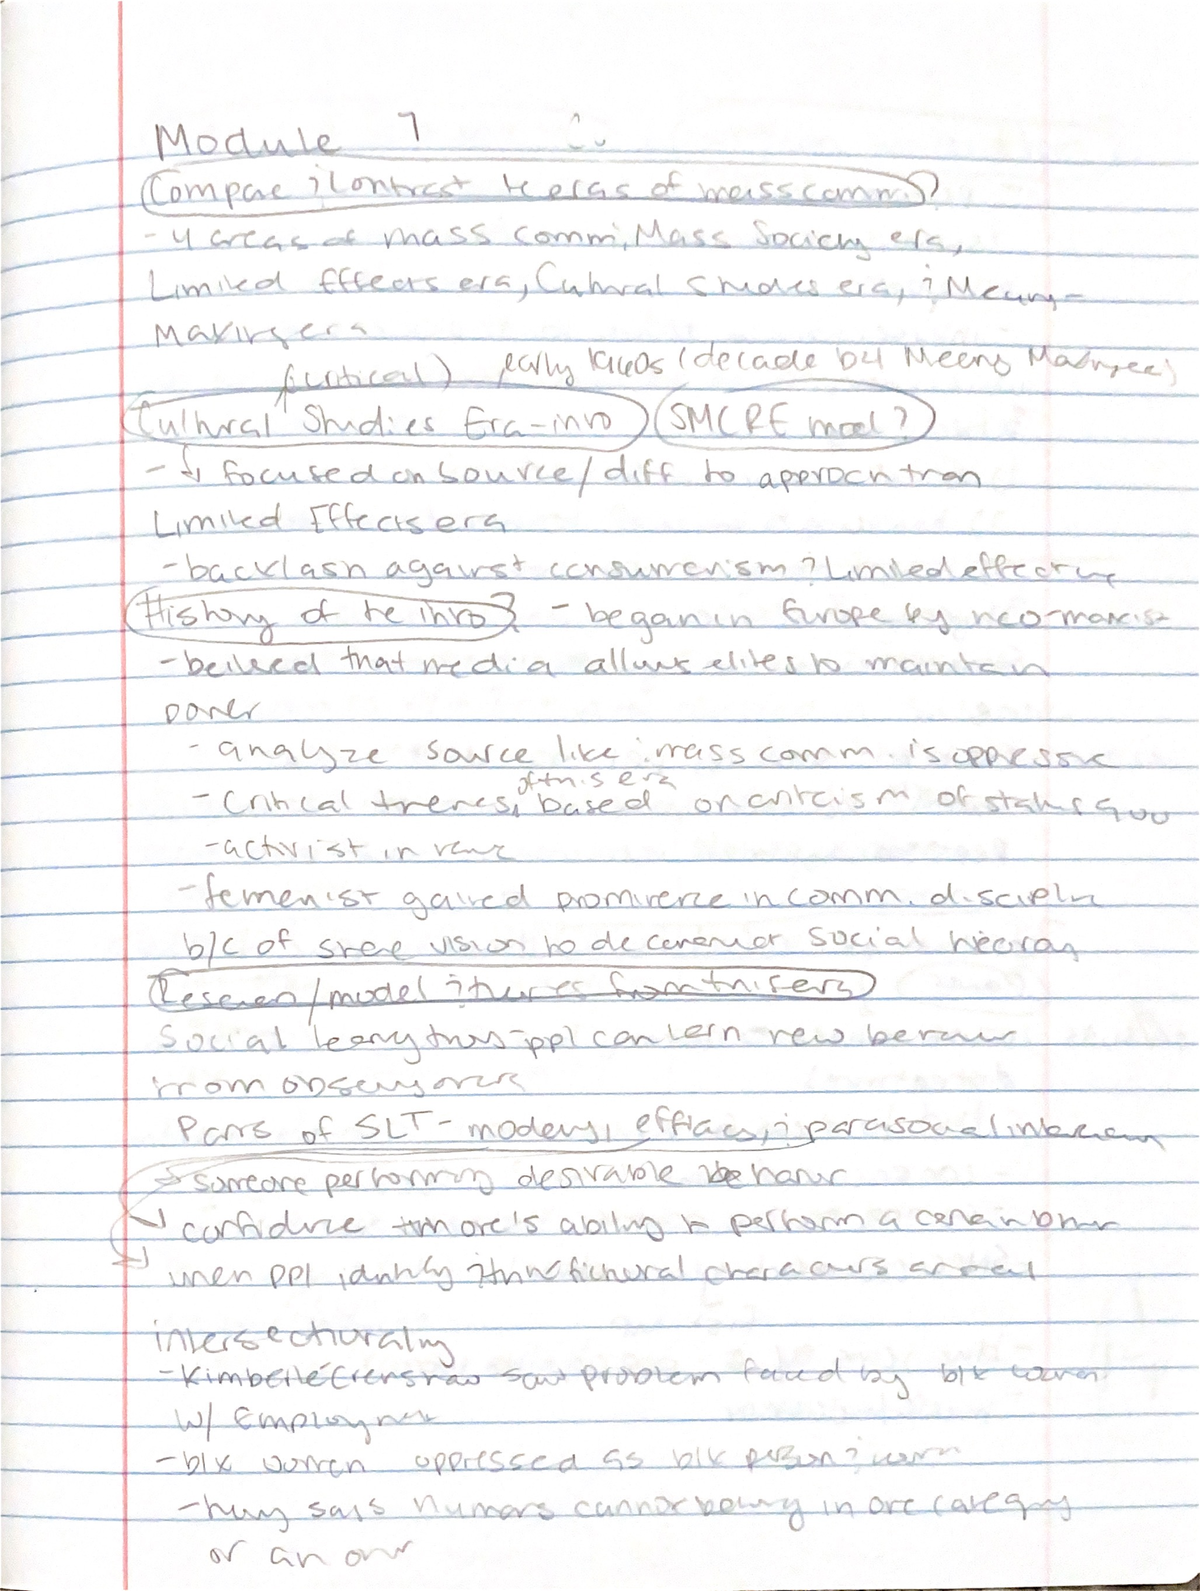 Module 7
Compare & Contrast te eras of mass comm.?
- 4 areas of mass comm, Mass Society era,
Limited Effects era, Cultural Studies era, & Meaning-
Making era
(critical) early 1960s (decade b4 Meeng Making era)
Cultural Studies Era-intro SMCRE model?
- focused on source / diff to approach than
Limited Effects era
- backlash against consumerism & Limited effects
History of te intro? - began in Europe by neo-marxist
- believed that media allows elites to maintain
power
- analyze source like mass comm. is oppressive
of this era
- Critical theories, based on criticism of status quo
- activist in
- femenist gained prominence in comm. discipline
b/c of vision to social
Research/model & theories from this era
Social learning - ppl can learn new behavior
from observing
Parts of SLT - modeling, efficacy, & parasocial interaction
someone performing desirable behavior
confidence in one's ability to perform a certain
when ppl identify fictional characters are real
intersectionality
- Kimberlé Crenshaw saw problem faced by blk women
w/ Employment
- blk women oppressed as blk person & women
- says humans cannot belong in one category
or